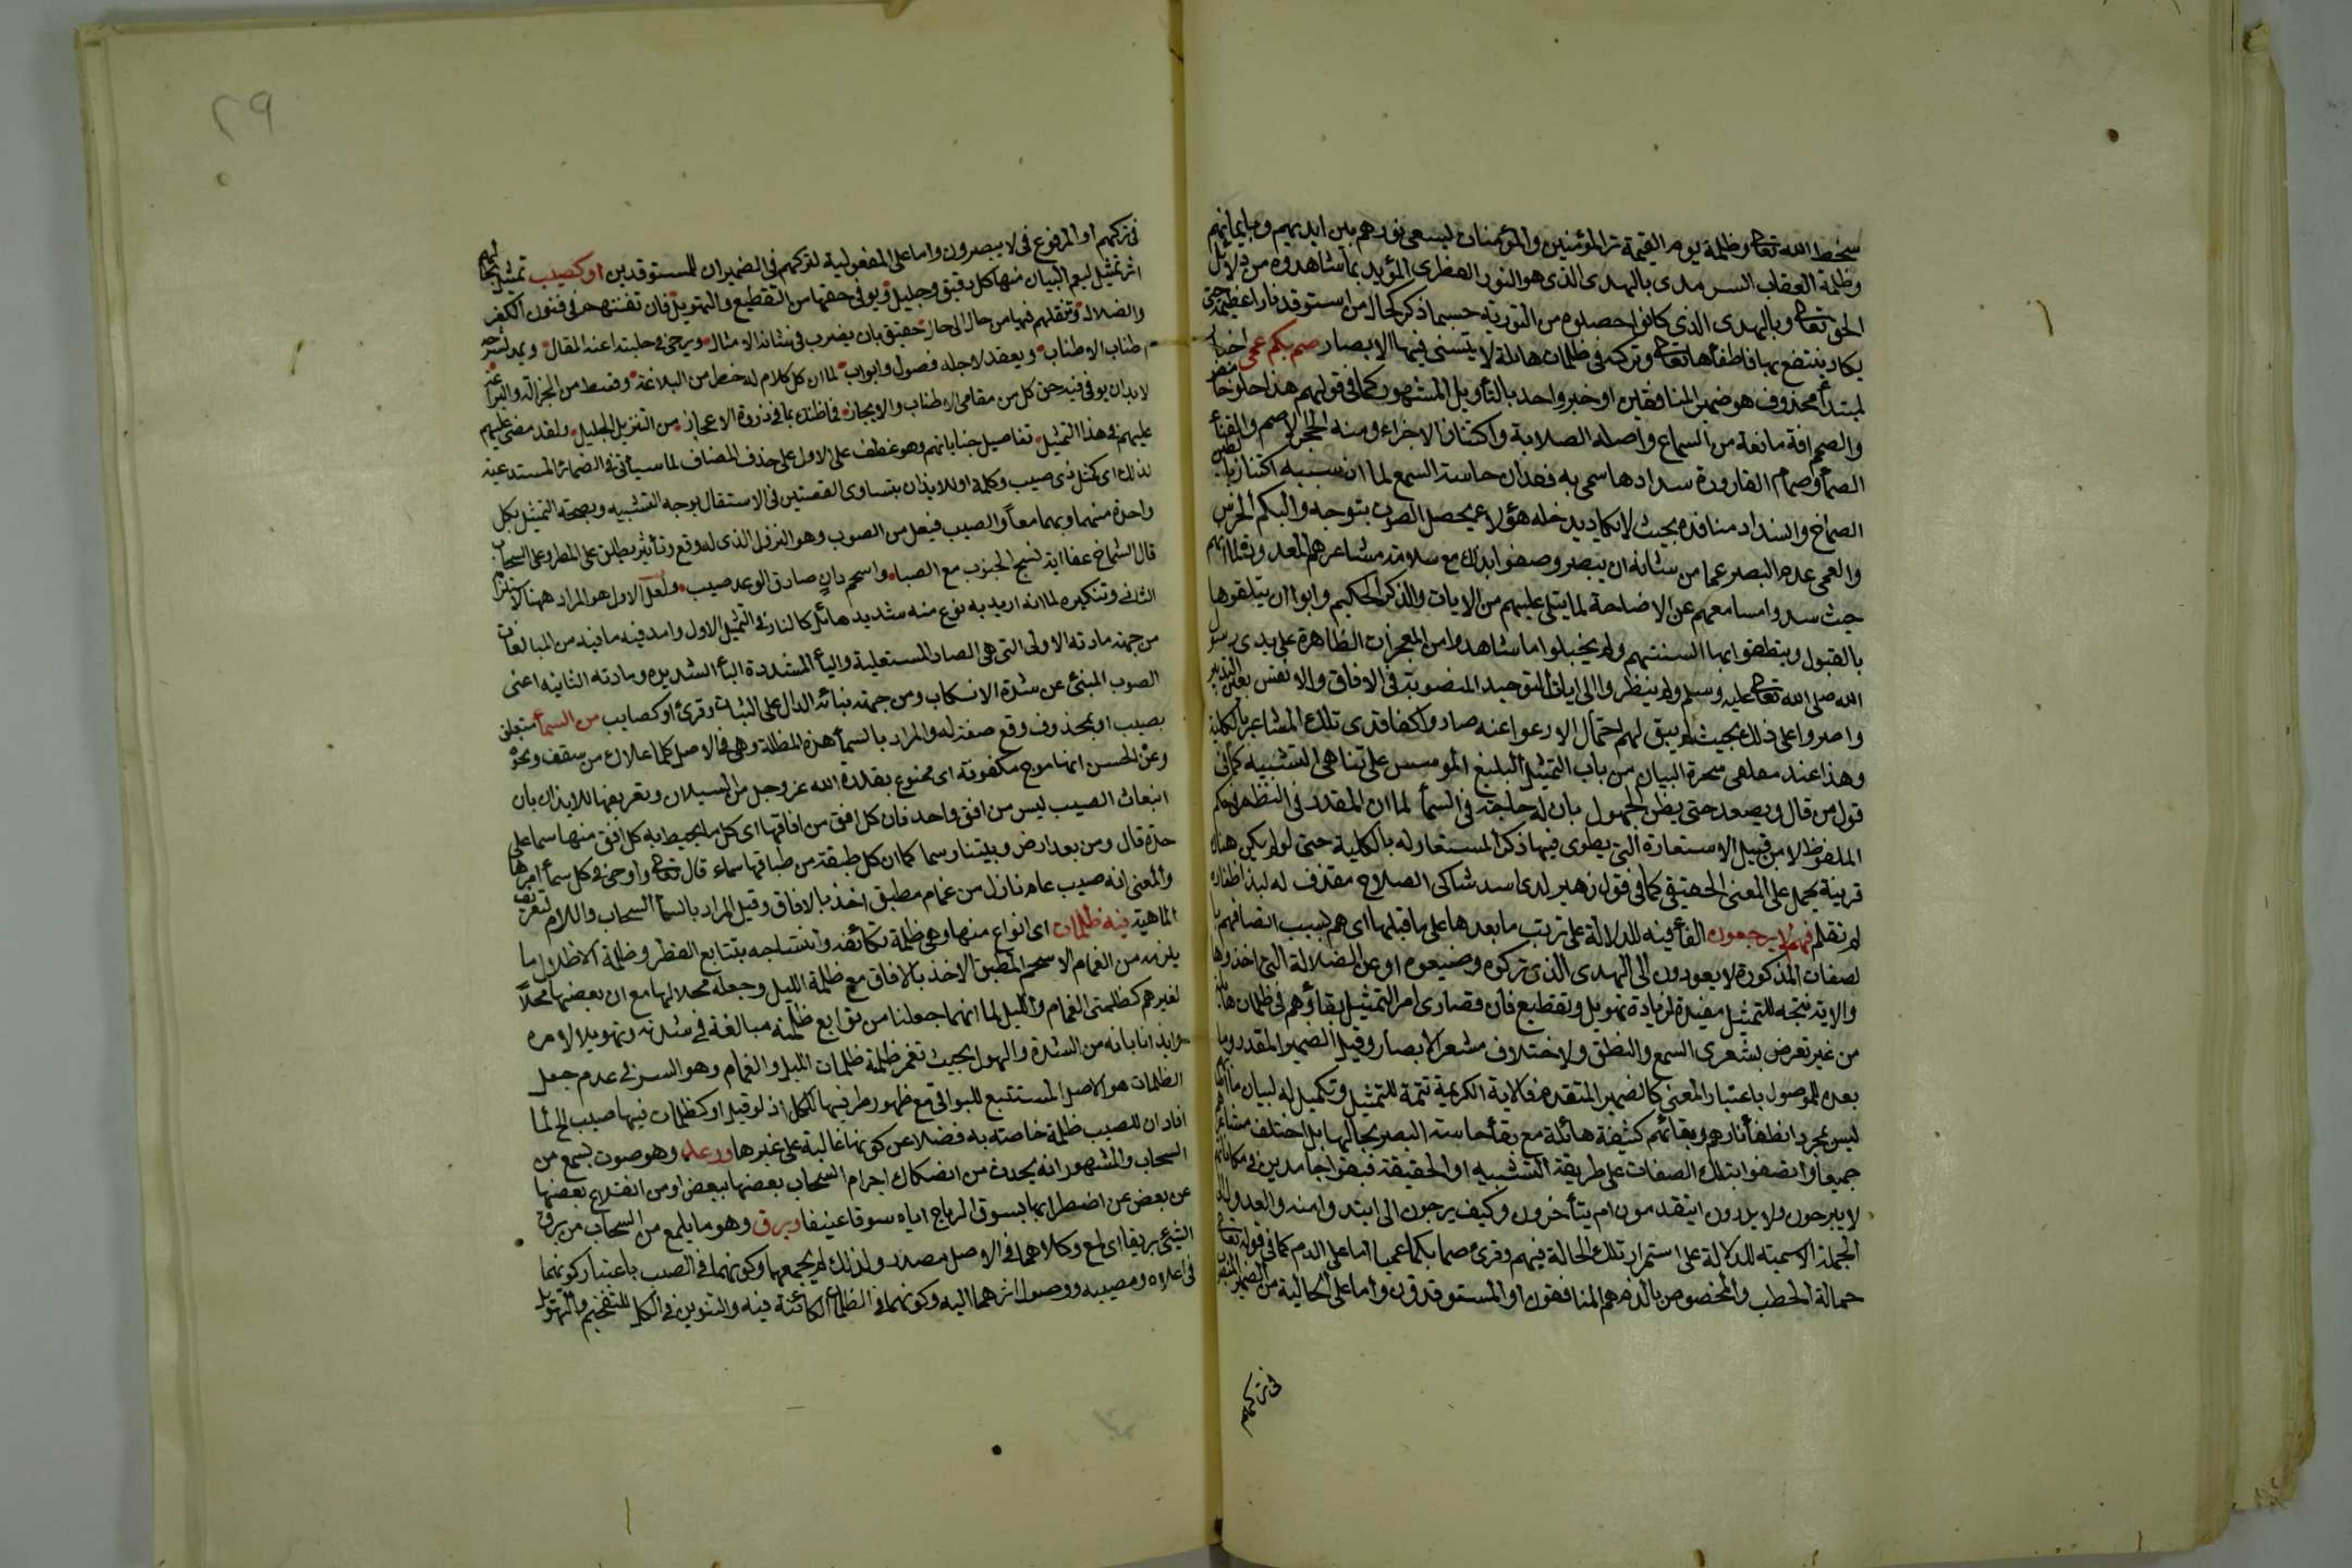 سخط الله تعالى وظلمة يوم القيمة ترى المؤمنين والمؤمنات يسعى نورهم بين ايديهم وبايمانهم
وظلمة العقاب السرمدى بالهدى الذى هو النور الفطرى المؤيد بما شاهدوه من دلائل
الحق تعالى وبالهدى الذى كانوا حصلوه من التورية حسبما ذكر كحال من استوقد نارا عظيمة حتى
يكاد ينتفع بها فاطفأها تعالى وتركه فى ظلمات هائلة لا يتسنى فيها الابصار صم بكم عمى اخبار
لمبتدأ محذوف هو ضمير المنافقين او خبر واحد بالتأويل المشهور كما فى قولهم هذا حلو حامض
والصمم افة مانعة من السماع واصله الصلابة واكتناز الاجزاء ومنه الحجر الاصم والقناة
الصماء وصمام القارورة سدادها سمى به فقدان حاسة السمع لما ان سببه اكتناز باطن
الصماخ وانسداد منافذه بحيث لا يكاد يدخله هواء يحصل الصوت بتموجه والبكم الخرس
والعمى عدم البصر عما من شانه ان يبصر وصفوا بذلك مع سلامة مشاعرهم المعدودة لما انهم
حيث سدوا مسامعهم عن الاصاخة لما يتلى عليهم من الايات والذكر الحكيم وابوا ان يتلقوها
بالقبول وينطقوا بها السنتهم ولم يجتلوا ما شاهدوا من المعجزات الظاهرة على يدى رسول
الله صلى الله تعالى عليه وسلم ولم ينظروا الى ايات التوحيد المنصوبة فى الافاق والانفس بعين التدبر
واصروا على ذلك بحيث لم يبق لهم احتمال الارعواء عنه صاروا كفاقدى تلك المشاعر بالكلية
وهذا عند مفلقى سحرة البيان من باب التمثيل البليغ المؤسس على تناهى التشبيه كما فى
قول من قال ويصعد حتى يظن الجهول بان له حاجة فى السماء لما ان المقدر فى النظم فى حكم
الملفوظ لا من قبيل الاستعارة التى يطوى فيها ذكر المستعار له بالكلية حتى لو لم يكن هناك
قرينة يحمل على المعنى الحقيقى كما فى قول زهير لدى اسد شاكى السلاح مقذف له لبد اظفاره
لم تقلم فهم لا يرجعون الفاء فيه للدلالة على ترتب ما بعدها على ما قبلها اى هم بسبب اتصافهم با
لصفات المذكورة لا يعودون الى الهدى الذى تركوه وضيعوه او عن الضلالة التى اخذوها
والاية نتيجة للتمثيل مفيدة لزيادة تهويل وتفظيع فان قصارى امر التمثيل بقاؤهم فى ظلمات هائلة
من غير تعرض لمشعرى السمع والنطق ولاختلاف مشعر الابصار وقيل الضمير المقدر وما
بعده للموصول باعتبار المعنى كالضمير المتقدمة فالاية الكريمة تتمة للتمثيل وتكميل له لبيان ما اصابهم
ليس مجرد انطفاء نارهم وبقائهم كثيفة هائلة مع بقاء حاسة البصر بحالها بل اختلف مشاعرهم
جميعا واتصفوا بتلك الصفات على طريقة التشبيه او الحقيقة فبقوا جامدين فى مكاناتهم
لا يبرحون ولا يدرون ايتقدمون ام يتأخرون وكيف يرجعون الى ابتدؤا منه والعدول الى
الجملة الاسمية للدلالة على استمرار تلك الحالة فيهم وقرئ صما بكما عميا اما على الذم كما فى قوله تعالى
حمالة الحطب والمخصوص بالذم هم المنافقون او المستوقدون واما على الحالية من الضمير المنصوب
فى تركهم
٢٩
فى تركهم او المرفوع فى لا يبصرون واما على المفعولية لتركهم فى الضميران للمستوقدين او كصيب تمثيل لحالهم
اثر تمثيل ليعم البيان منها كل دقيق وجليل ويوفى حقها من التفظيع والتهويل فان تفننهم فى فنون الكفر
والضلال وتنقلهم فيها من حال الى حال حقيق بان يضرب فى شانه الامثال ويرخى فى حلبته اعنة المقال ويمد لشرحه
اطناب الاطناب ويعقد لاجله فصول وابواب لما ان كل كلام له حظ من البلاغة وقسط من الجزالة والبراعة
لا بد ان يوفى فيه حق كل من مقامى الاطناب والايجاز فما ظنك بما فى ذروة الاعجاز من التنزيل الجليل ولقد نعى عليهم
عليهم فى هذا التمثيل تفاصيل جناياتهم وهو عطف على الاول على حذف المضاف لما سيأتى من الضمائر المستدعية
لذلك اى كمثل ذى صيب وكلمة او للايذان بتساوى القصتين فى الاستقلال بوجه التشبيه وبصحة التمثيل بكل
واحدة منهما وبهما معا والصيب فيعل من الصوب وهو النزول الذى له وقع وتأثير يطلق على المطر وعلى السحاب
قال الشماخ عفا ايه نسج الجنوب مع الصبا واسحم دان صادق الوعد صيب ولعل الاول هو المراد ههنا لاستلزامه
الثانى وتنكيره لما انه اريد به نوع منه شديد هائل كالنار فى التمثيل الاول وامد فيه ما فيه من المبالغات
من جهة مادته الاولى التى هى الصاد المستعلية والياء المشددة الباء الشديدة ومادته الثانية اعنى
الصوب المنبئ عن شدة الانسكاب ومن جهة بنائه الدال على الثبات وقرئ او كصايب من السماء متعلق
بصيب او بمحذوف وقع صفة له والمراد بالسماء هذه المظلة وهى فى الاصل كلما علاك من سقف ونحوه
وعن الحسن انها موج مكفوفة اى ممنوع بقدرة الله عز وجل من السيلان وتعريفها للايذان بان
انبعاث الصيب ليس من افق واحد فان كل افق من افاقها اى كل ما يحيط به كل افق منها سماء على
حدة قال ومن بعد ارض بيننا وسماء كما ان كل طبقة من طباقها سماء قال تعالى واوحى فى كل سماء امرها
والمعنى انه صيب عام نازل من غمام مطبق اخذ بالافاق وقيل المراد بالسماء السحاب واللام لتعريف
الماهية فيه ظلمات اى انواع منها وهى ظلمة تكاثفه وانتساجه بتتابع القطر وظلمة الاظلال ما
يلزمه من الغمام الاسحم المطبق الاخذ بالافاق مع ظلمة الليل وجعله محلا لها مع ان بعضها محلا
لغيرهم كظلمتى الغمام والليل لما انهما جعلنا من توابع ظلمته مبالغة فى شدته وتهويلا لامره
وايذانا بانه من الشدة والهول بحيث تغمر ظلمة ظلمات الليل والغمام وهو السر فى عدم جعل
الظلمات هو الاصل المستتبع للبواقى مع ظهور ظرفيها للكل اذ لو قيل او كظلمات فيها صيب الخ لما
افاد ان للصيب ظلمة خاصة به فضلا عن كونها غالبة على غيرها ورعد وهو صوت يسمع من
السحاب والمشهور انه يحدث من اصطكاك اجرام السحاب بعضها ببعض او من انقلاع بعضها
عن بعض عن اضطرابها بسوق الرياح اياه سوقا عنيفا وبرق وهو ما يلمع من السحاب من برق
الشيئ بريقا اى لمع وكلاهما فى الاصل مصدر ولذلك لم يجمعها وكونهما فى الصيب باعتبار كونهما
فى اعلاه ومصببه ووصول اثرهما اليه وكونهما فى الظلمات الكائنة فيه والتنوين فى الكل للتفخيم والتهويل